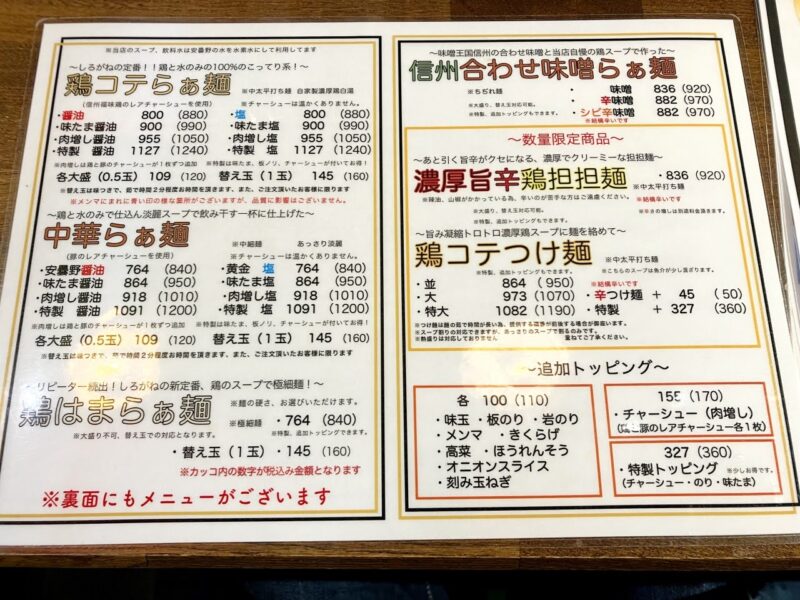 ※当店のスープ、飲料水は安曇野の水を水素水にして利用してます
～しろがねの定番！！鶏と水のみの100%のこってり系！～
鶏コテらぁ麺
※中太平打ち麺 自家製濃厚鶏白湯
(信州福味鶏のレアチャーシューを使用)
※チャーシューは温かくありません。
・醤油 800 (880)
・味たま醤油 900 (990)
・肉増し醤油 955 (1050)
・特製 醤油 1127 (1240)
・塩 800 (880)
・味たま塩 900 (990)
・肉増し塩 955 (1050)
・特製 塩 1127 (1240)
※肉増しは鶏と豚のチャーシューが１枚ずつ追加 ※特製は味たま、板ノリ、チャーシューが付いてお得！
各大盛 (0.5玉) 109 (120) 替え玉 (１玉) 145 (160)
※替え玉は味つきで、茹で時間２分程度お時間を頂きます、また、ご注文頂いたお客様に限ります
※メンマにまれに青い印の様な箇所がございますが、品質に影響はございません。
～鶏と水のみで仕込ん淡麗スープで飲み干す一杯に仕上げた～
中華らぁ麺
※中細麺 あっさり淡麗
(豚のレアチャーシューを使用)
※チャーシューは温かくありません。
・安曇野醤油 764 (840)
・味たま醤油 864 (950)
・肉増し醤油 918 (1010)
・特製 醤油 1091 (1200)
・黄金 塩 764 (840)
・味たま塩 864 (950)
・肉増し塩 918 (1010)
・特製 塩 1091 (1200)
※肉増しは鶏と豚のチャーシューが１枚ずつ追加 ※特製は味たま、板ノリ、チャーシューが付いてお得！
各大盛 (0.5玉) 109 (120) 替え玉 (１玉) 145 (160)
※替え玉は味つきで、茹で時間２分程度お時間を頂きます、また、ご注文頂いたお客様に限ります
～リピーター続出！しろがねの新定番、鶏のスープで極細麺！～
鶏はまらぁ麺
※麺の硬さ、お選びいただけます。
※極細麺 ・764 (840)
※大盛り不可、替え玉での対応となります。
※特製、追加トッピングもできます。
・替え玉 (１玉) ・145 (160)
※カッコ内の数字が税込み金額となります
※裏面にもメニューがございます
～味噌王国信州の合わせ味噌と当店自慢の鶏スープで作った～
信州合わせ味噌らぁ麺
※ちぢれ麺
※大盛り、替え玉対応可能。
※特製、追加トッピングもできます。
・味噌 836 (920)
・辛味噌 882 (970)
・シビ辛味噌 882 (970)
※結構辛いです
～数量限定商品～
～あと引く旨辛がクセになる、濃厚でクリーミーな担担麺～
濃厚旨辛鶏担担麺
・836 (920)
※中太平打ち麺
※辣油、山椒がかかっている為、辛いのが苦手な方はご遠慮ください。
※結構辛いです
※大盛り、替え玉対応可能。
※特製、追加トッピングもできます。
※辛さの増しは別途料金頂きます。
～旨み凝縮トロトロ濃厚鶏スープに麺を絡めて～
鶏コテつけ麺
※中太平打ち麺
※特製、追加トッピングもできます。
※こちらのスープは魚介が少し混ざります。
・並 864 (950)
・大 973 (1070)
・特大 1082 (1190)
※結構辛いです
・辛つけ麺 + 45 (50)
・特製 + 327 (360)
※つけ麺は麺の茹で時間が長い為、提供する順序が前後する場合が御座います。
※スープ割りの対応できますが、あっさりのスープで割るのみです。
※熱盛りは対応しておりません 重ねてご了承ください。
～追加トッピング～
各 100 (110)
・味玉 ・板のり ・岩のり
・メンマ ・きくらげ
・高菜 ・ほうれんそう
・オニオンスライス
・刻み玉ねぎ
155 (170)
・チャーシュー (肉増し)
豚のレアチャーシュー各１枚)
327 (360)
・特製トッピング ※少しお得です。
(チャーシュー・のり・味たま)